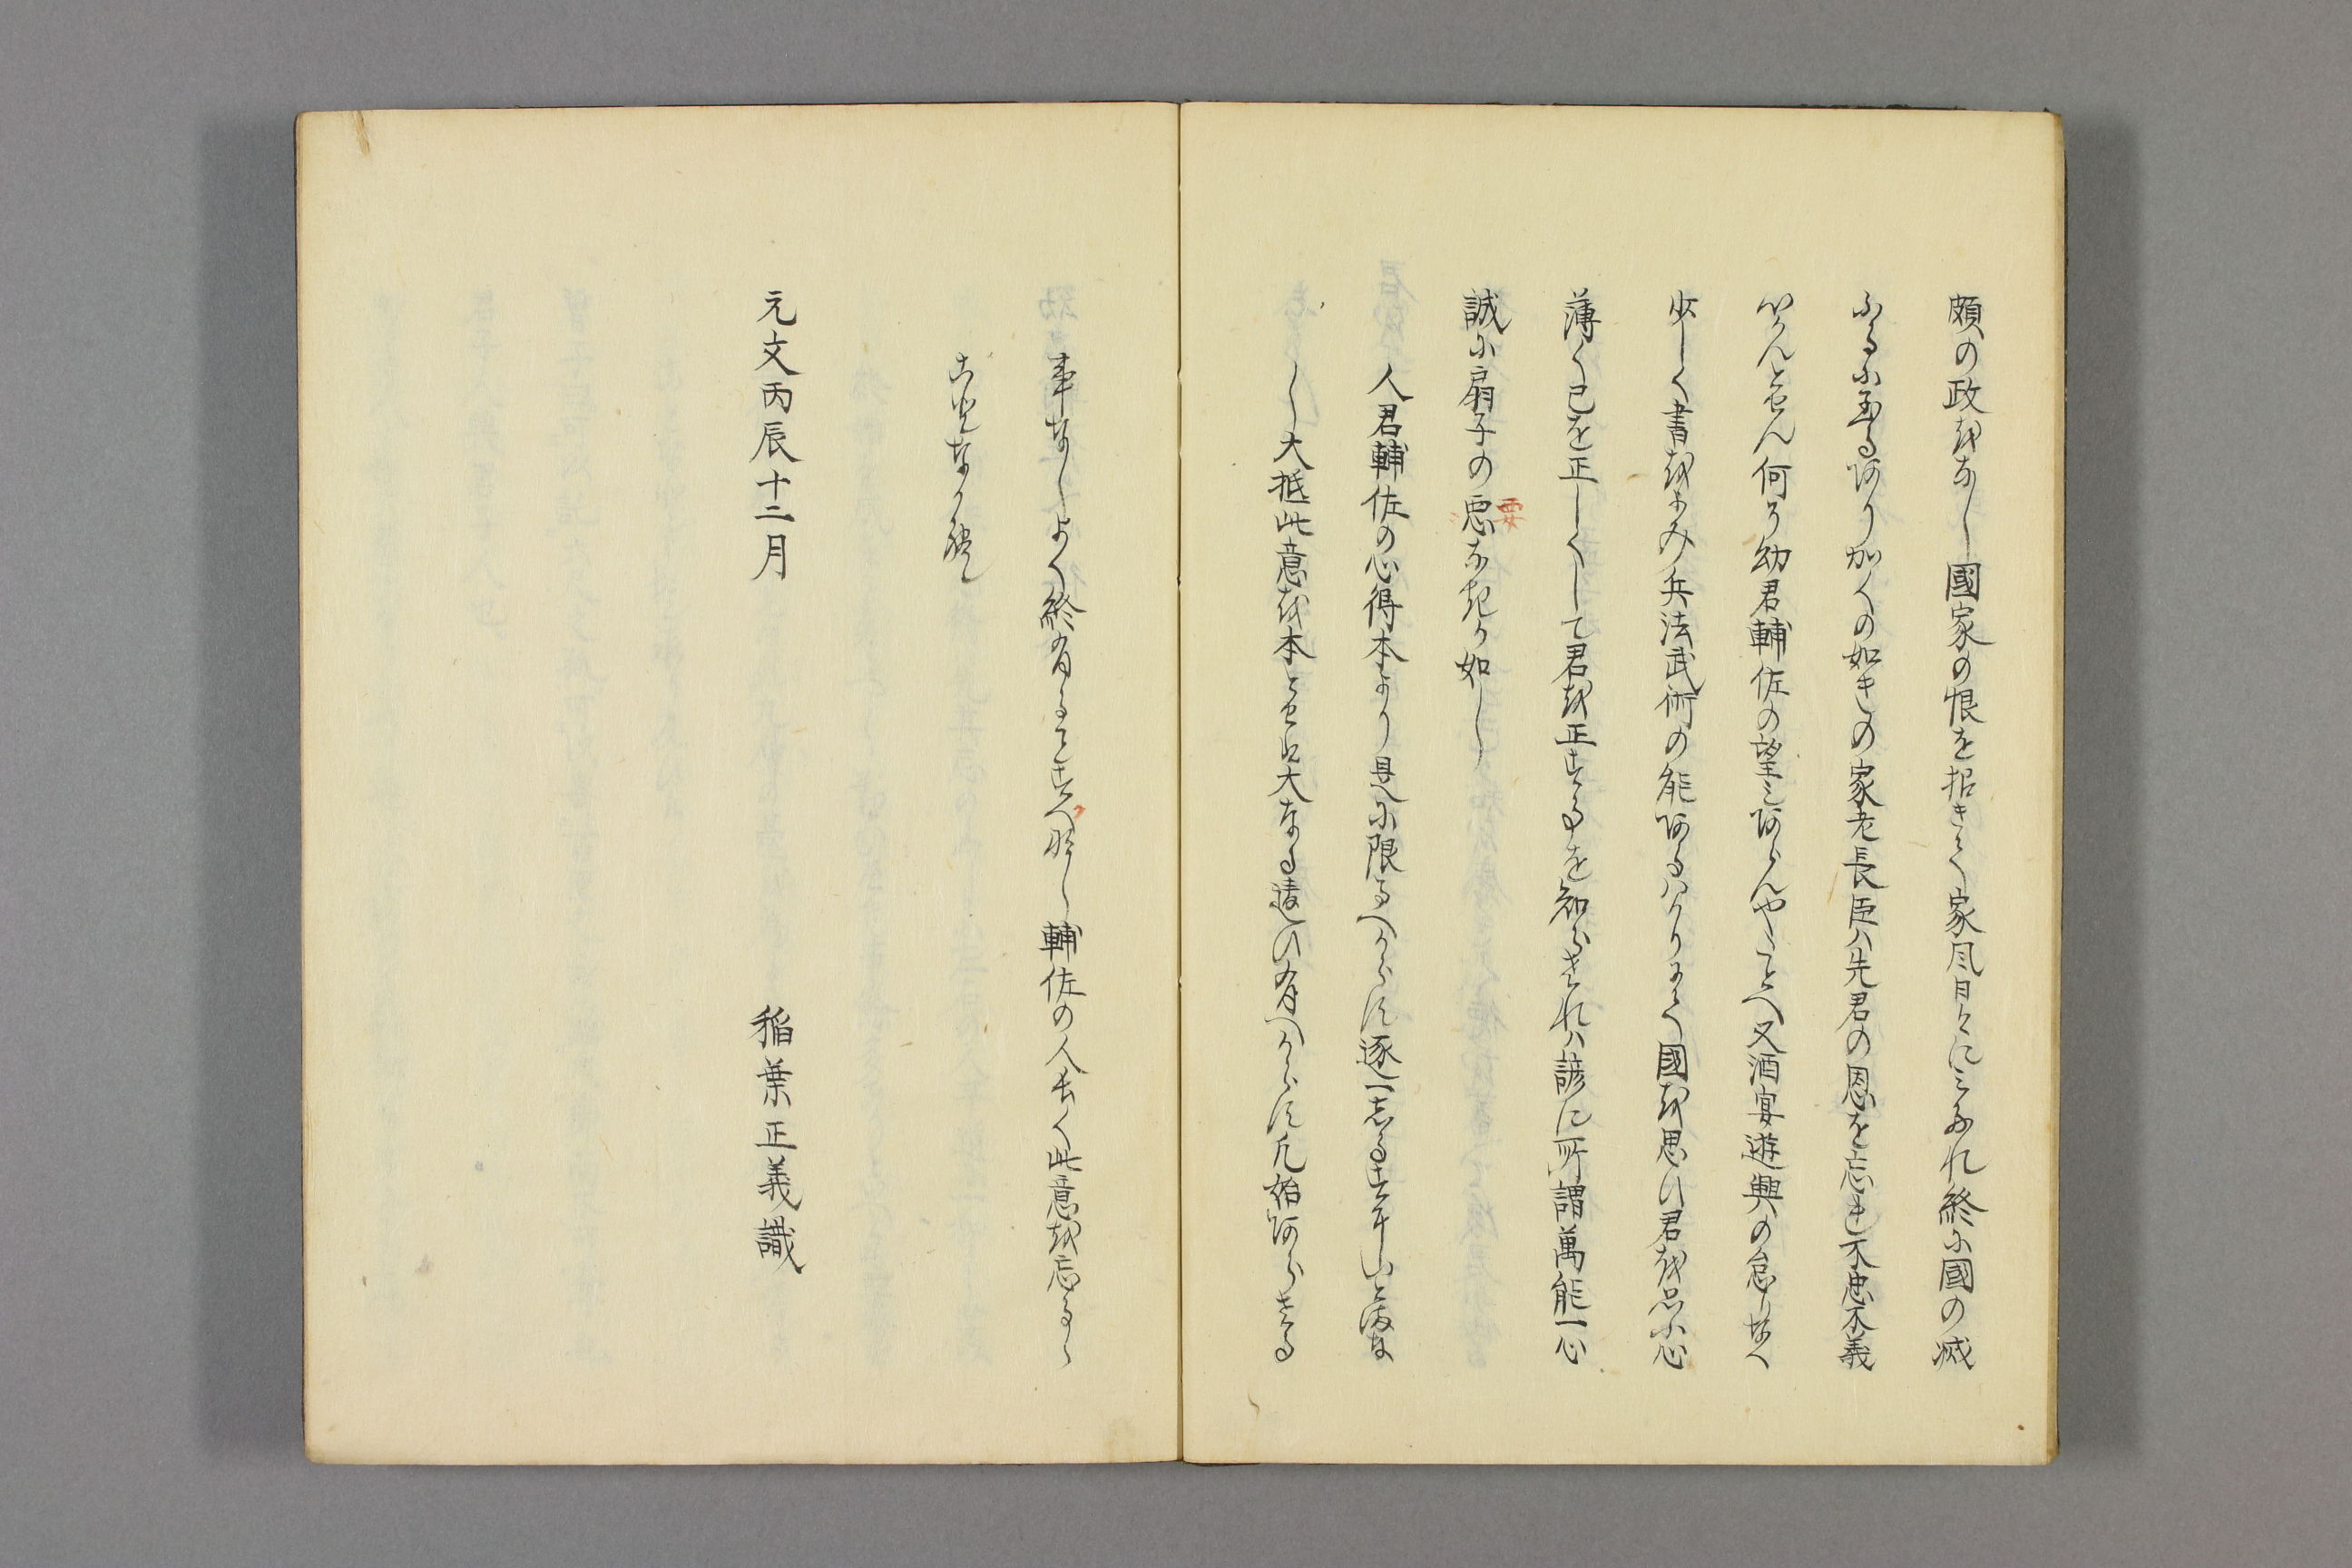 頗の政をなし國家の恨を招きて家風日々にみたれ終に國の滅
ふるに至るあり加くの如きの家老長臣ハ先君の恩を忘れ不忠不義
いかんとせん何そ幼君輔佐の望みあらんやたとへ又酒宴遊興の怠りなく
少しく書をよみ兵法武術の能あるはかりにて國を思ひ君を思ふ心
薄く己を正しくして君を正す事を知らされハ諺に所謂萬能一心
誠に扇子の悪なきか如し
要
人君輔佐の心得本より是に限るへからす逐一志るす事いとまな
し大抵此意を本とせは大なる違ひ有へからす凡始あらさる
事なしよく終有ることすくなし輔佐の人長く此意を忘るゝ
こ
なかれ
元文丙辰十二月
稲葉正義識